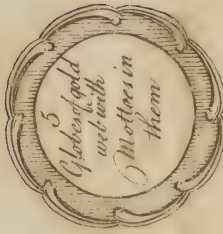 5
Globes of gold
web with
Mottoes in
them